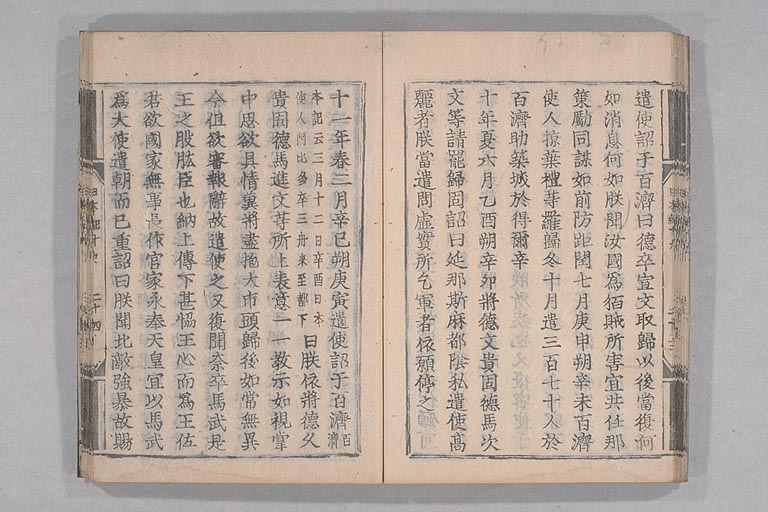 遣使詔于百濟曰德卒宣文取歸以後當復何
如消息何如朕聞汝國爲狛賊所害宜共任那
策勵同謀如前防距閏七月庚申朔辛未百濟
使人掠葉禮等罷歸冬十月遣三百七十人於
百濟助築城於得爾辛
十年夏六月乙酉朔辛卯將德文貴固德馬次
文等請罷歸因詔曰延那斯麻都陰私遣使高
麗者朕當遣問虛實所乞軍者依願停之
十一年春二月辛巳朔庚寅遣使詔于百濟百濟
本記云三月十二日辛酉日本
使人阿比多率三舟來至都下曰朕依將德久
貴固德馬進文等所上表意一一教示如視掌
中思欲具情冀將盡抱大市頭歸後如常無異
今但欲審報辭故遣使之又復聞奈卒馬武是
王之股肱臣也納上傳下甚愜王心而爲王佐
若欲國家無事長作官家永奉天皇宜以馬武
爲大使遣朝而已重詔曰朕聞北敵強暴故賜